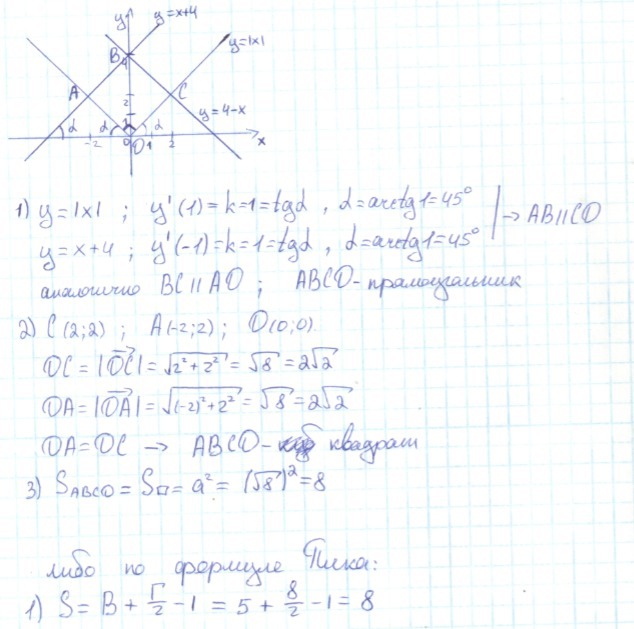 y
y=x+4
y=|x|
B
4
A
2
C
y=4-x
α
α
1
α
-2
0
O
1
2
x
1) y=|x| ; y'(1)=k=1=tgα , α=arctg1=45°
→ AB||CO
y=x+4 ; y'(-1)=k=1=tgα , α=arctg1=45°
аналогично BC||AO ; ABCO-прямоугольник
2) C(2;2) ; A(-2;2) ; O(0;0).
OC=|OC|=√(2²+2²)=√8=2√2
OA=|OA|=√((-2)²+2²)=√8=2√2
OA=OC → ABCO- квадрат
3) SABCO=S□=a²=(√8)²=8
либо по формуле Пика:
1) S= В + Г/2 -1 = 5 + 8/2 -1 = 8